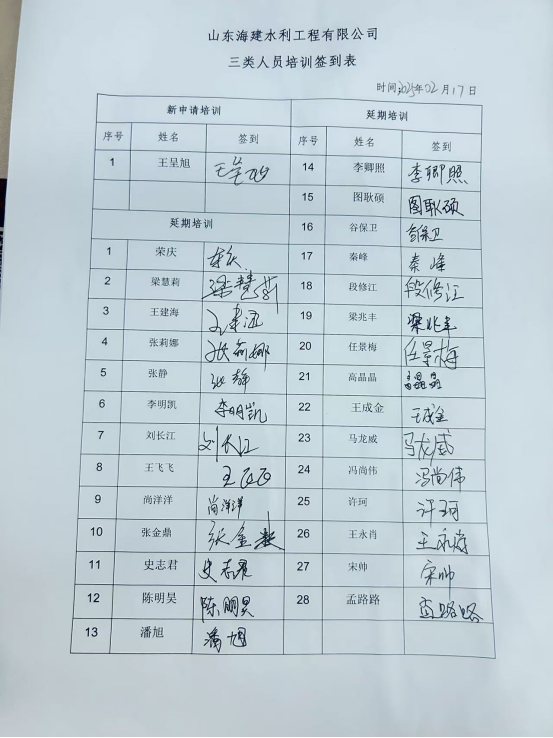 山东海建水利工程有限公司
三类人员培训签到表
时间:2025年02月17日
新申请培训 延期培训
序号 姓名 签到 序号 姓名 签到
1 王呈旭 王呈旭 14 李卿照 李卿照
15 图耿硕 图耿硕
延期培训 16 谷保卫 谷保卫
1 荣庆 荣庆 17 秦峰 秦峰
2 梁慧莉 梁慧莉 18 段修江 段修江
3 王建海 王建海 19 梁兆丰 梁兆丰
4 张莉娜 张莉娜 20 任景梅 任景梅
5 张静 张静 21 高晶晶 高晶晶
6 李明凯 李明凯 22 王成金 王成金
7 刘长江 刘长江 23 马龙威 马龙威
8 王飞飞 王飞飞 24 冯尚伟 冯尚伟
9 尚洋洋 尚洋洋 25 许珂 许珂
10 张金鼎 张金鼎 26 王永肖 王永肖
11 史志君 史志君 27 宋帅 宋帅
12 陈明昊 陈明昊 28 孟路路 孟路路
13 潘旭 潘旭